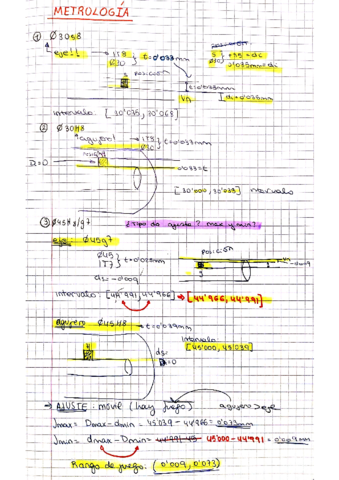 METROLOGÍA
① Ø30s8
eje!! → IT8 Ø30 } t=0'033mm
posición s Ø30 } +35 = di
0'035mm = di
s posición
t=0'033mm
VN di=0'035mm
Intervalo: [30'035, 30'068]
② Ø30H8
agujero! → IT8 Ø30 } t=0'033mm
Di=0
0'033=t
[30'000, 30'033] intervalo
③ Ø45H8/g7 ¿Tipo de ajuste? max y min?
eje: Ø45g7
Ø45 IT7 } t=0'025mm
posición
ds=-0'009
Intervalo: [44'991, 44'966] → [44'966, 44'991]
agujero Ø45H8 → t=0'039mm
H
Di=0
Intervalo: [45'000, 45'039]
→ AJUSTE: móvil (hay juego) agujero>eje
Jmax= Dmax-dmin = 45'039-44'966=0'073mm
Jmin= dmax-Dmin= 44'991-45 45'000-44'991=0'009mm
Rango de juego: (0'009, 0'073)